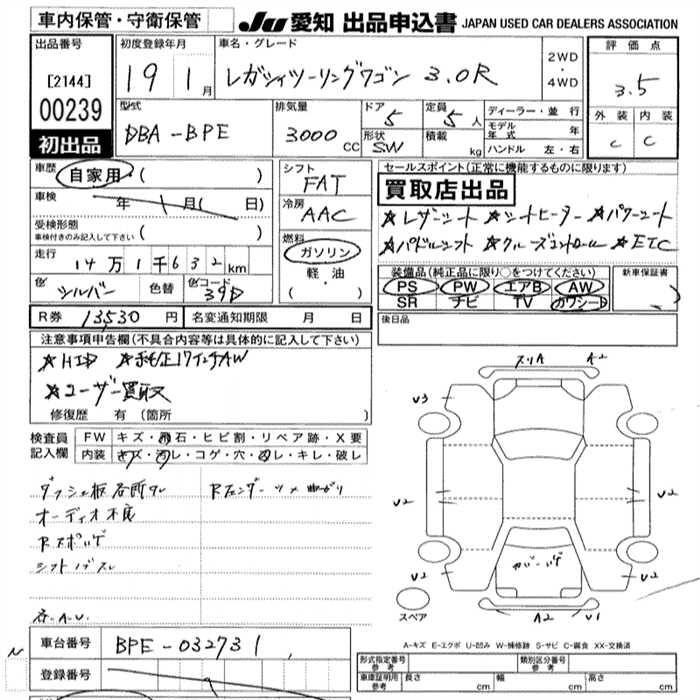 車内保管・守衛保管
JU 愛知 出品申込書 JAPAN USED CAR DEALERS ASSOCIATION
出品番号
[2144]
00239
初出品
初度登録年月
19 1月
車名・グレード
レガシィツーリングワゴン 3.0R
2WD
・
4WD
評価点
3.5
外装 内装
C C
型式
DBA-BPE
排気量
3000 CC
ドア 5
形状 SW
定員 5人
積載 kg
ディーラー・並行
モデル年式 年
ハンドル 左・右
車歴 自家用・( )
車検 年 月( 日)
受検形態
車検付きのみ記入して下さい ( )
走行 14万1千632km
色 シルバー 色替 色コード 39D
シフト
FAT
冷房
AAC
燃料
ガソリン
・
軽・油
( ・ )
セールスポイント(正常に機能するものに限ります)
買取店出品
★レザーシート ★シートヒーター ★パワーシート
★パドルシフト ★クルーズコントロール ★ETC
装備品(純正品に限り○をつけてください)
PS PW エアB AW
SR ナビ TV カワシート
新車保証書
後日品
R券 13530円 名変通知期限 月 日
注意事項申告欄(不具合内容等は具体的に記入して下さい)
★HID ★純正17インチAW
★ユーザー買取
修復歴 有(箇所 )
検査員記入欄
FW キズ・飛石・ヒビ割・リペア跡・X要
内装 キズ・汚レ・コゲ・穴・切レ・キレ・破レ
オーディオ不良
谷.A.U.
スペア
A2
A2
V3
V2
V2
V2
V2
A2
V1
A-キズ E-エクボ U-凹み W-補修跡 S-サビ C-腐食 XX-交換済
N
車台番号 BPE-032731
登録番号
形式指定番号 参考
類別区分番号 参考
車庫証明用 参考 長さ cm 幅 cm 高さ cm